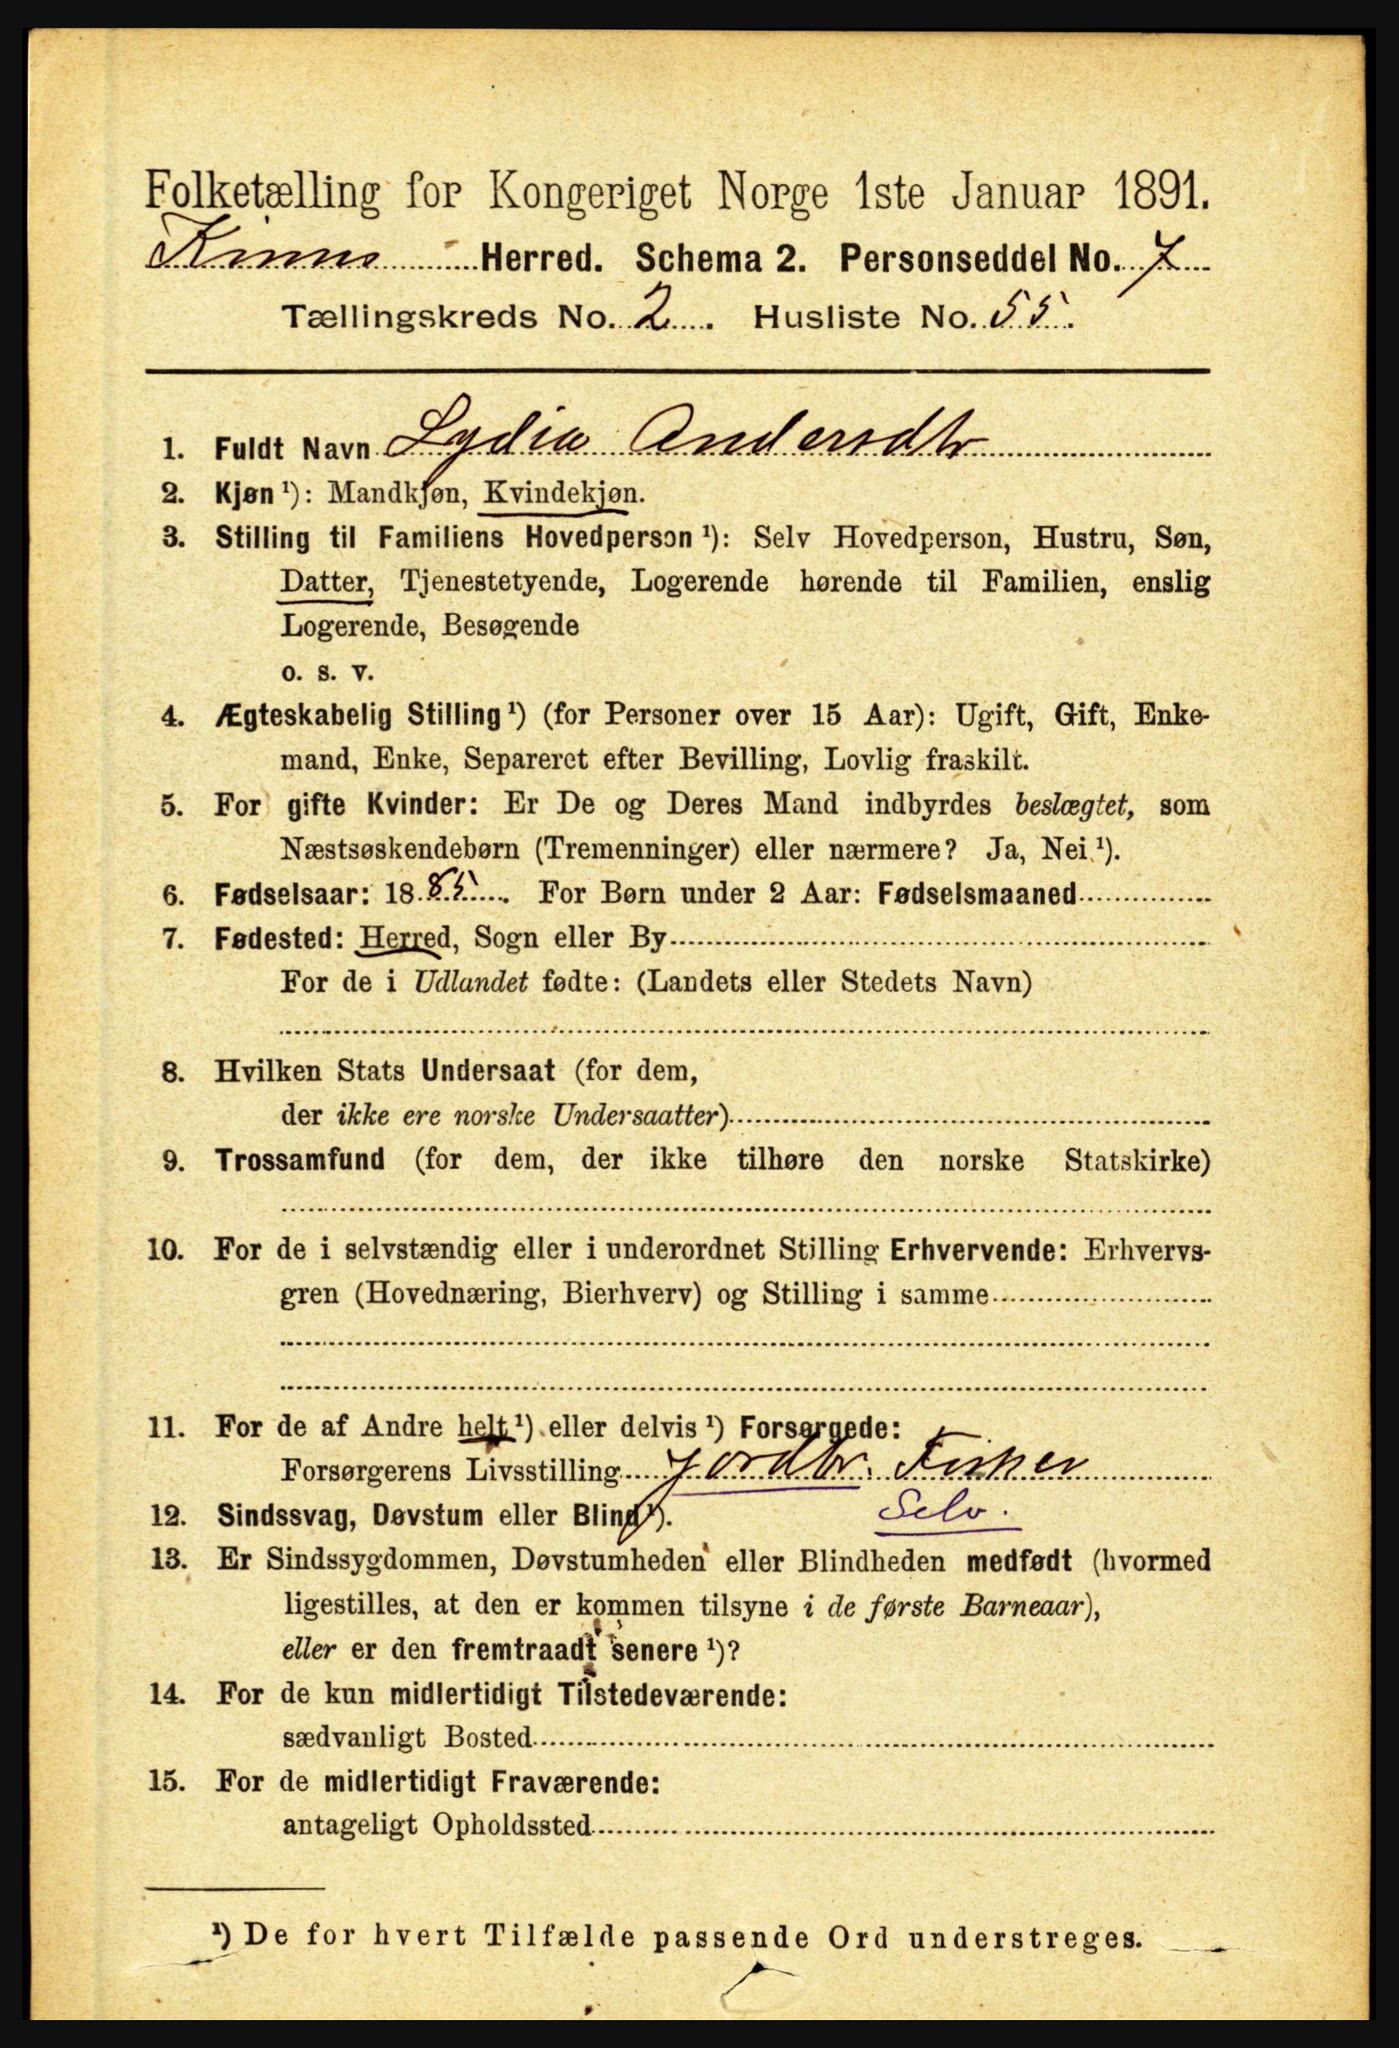 Folketælling for Kongeriget Norge 1ste Januar 1891.
Kinns Herred. Schema 2. Personseddel No. 7
Tællingskreds No. 2. Husliste No. 55.
1. Fuldt Navn Lydia Andersdtr
2. Kjøn ¹): Mandkjøn, Kvindekjøn.
3. Stilling til Familiens Hovedperson ¹): Selv Hovedperson, Hustru, Søn,
Datter, Tjenestetyende, Logerende hørende til Familien, enslig
Logerende, Besøgende
o. s. v.
4. Ægteskabelig Stilling ¹) (for Personer over 15 Aar): Ugift, Gift, Enke-
mand, Enke, Separeret efter Bevilling, Lovlig fraskilt.
5. For gifte Kvinder: Er De og Deres Mand indbyrdes beslægtet, som
Næstsøskendebørn (Tremenninger) eller nærmere? Ja, Nei ¹).
6. Fødselsaar: 1885. For Børn under 2 Aar: Fødselsmaaned
7. Fødested: Herred, Sogn eller By
For de i Udlandet fødte: (Landets eller Stedets Navn)
8. Hvilken Stats Undersaat (for dem,
der ikke ere norske Undersaatter)
9. Trossamfund (for dem, der ikke tilhøre den norske Statskirke)
10. For de i selvstændig eller i underordnet Stilling Erhvervende: Erhvervs-
gren (Hovednæring, Bierhverv) og Stilling i samme
11. For de af Andre helt ¹) eller delvis ¹) Forsørgede:
Forsørgerens Livsstilling Jordbr. Fisker
12. Sindssvag, Døvstum eller Blind ¹). Selv.
13. Er Sindssygdommen, Døvstumheden eller Blindheden medfødt (hvormed
ligestilles, at den er kommen tilsyne i de første Barneaar),
eller er den fremtraadt senere ¹)?
14. For de kun midlertidigt Tilstedeværende:
sædvanligt Bosted
15. For de midlertidigt Fraværende:
antageligt Opholdssted
¹) De for hvert Tilfælde passende Ord understreges.